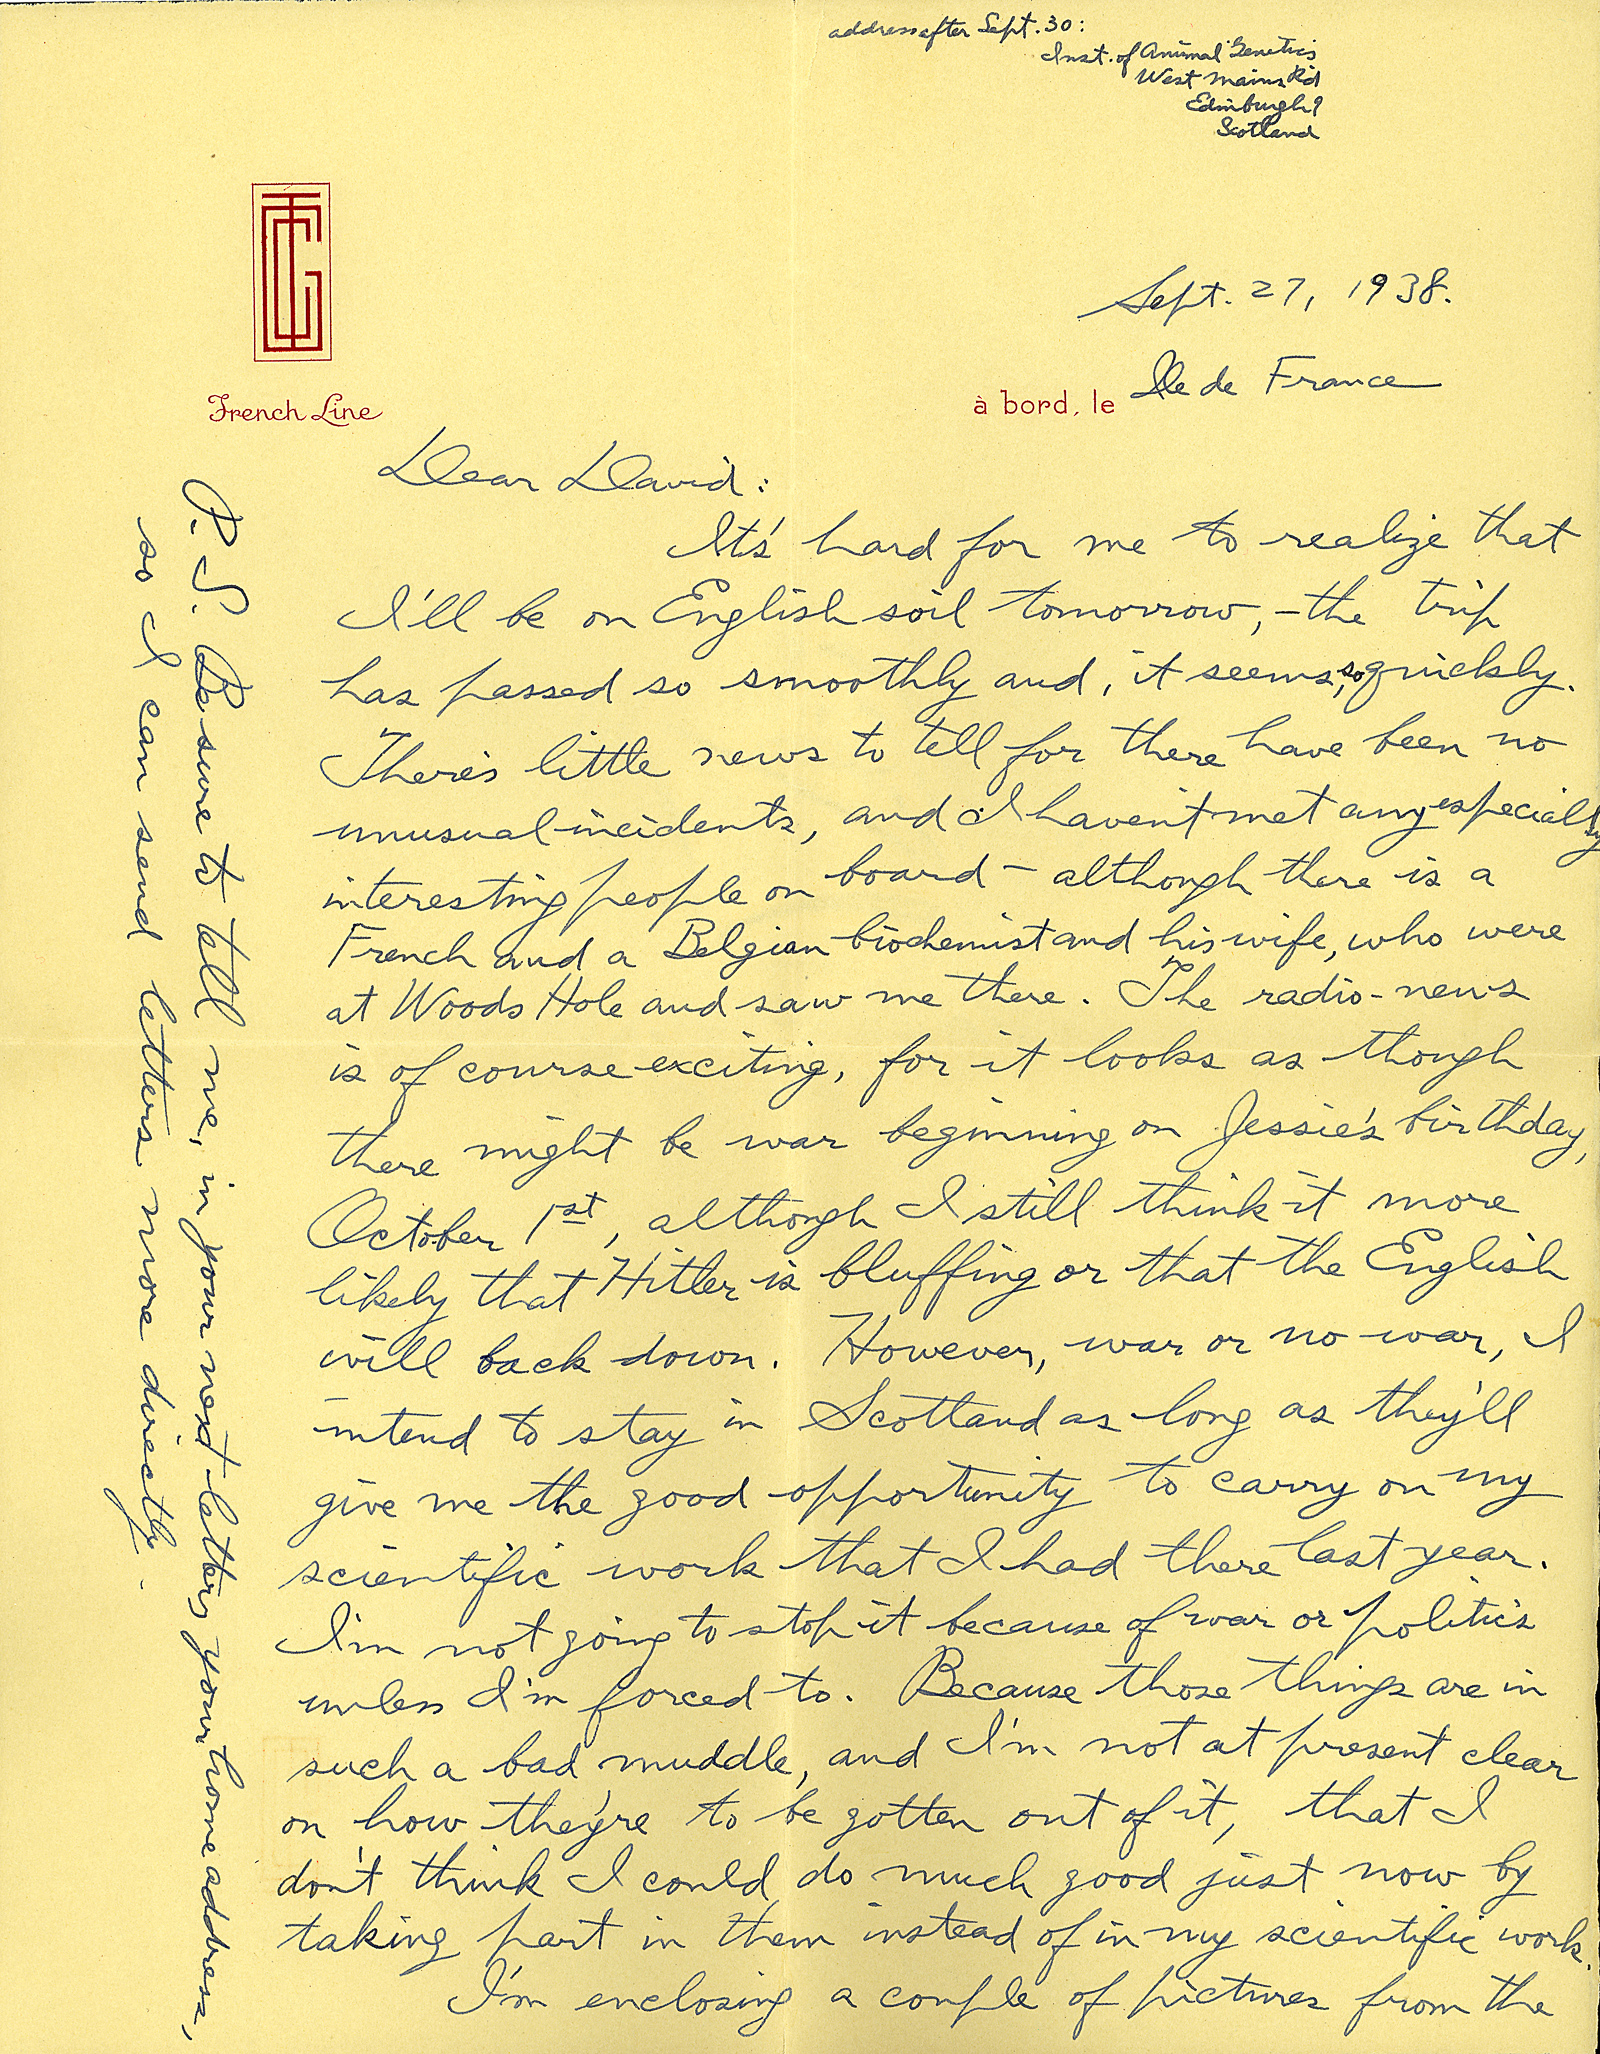 address after Sept. 30:
Inst. of Animal Genetics
West Mains Rd
Edinburgh 9
Scotland
Sept. 27, 1938.
French Line
à bord, le Ile de France
Dear David:
It's hard for me to realize that
I'll be on English soil tomorrow, – the trip
has passed so smoothly and, it seems, so quickly.
There's little news to tell for there have been no
unusual incidents, and I haven't met any especially
interesting people on board – although there is a
French and a Belgian biochemist and his wife, who were
at Woods Hole and saw me there. The radio-news
is of course exciting, for it looks as though
there might be war beginning on Jessie's birthday,
October 1st, although I still think it more
likely that Hitler is bluffing or that the English
will back down. However, war or no war, I
intend to stay in Scotland as long as they'll
give me the good opportunity to carry on my
scientific work that I had there last year.
I'm not going to stop it because of war or politics
unless I'm forced to. Because those things are in
such a bad muddle, and I'm not at present clear
on how they're to be gotten out of it, that I
don't think I could do much good just now by
taking part in them instead of in my scientific work.
I'm enclosing a couple of pictures from the
P.S. Be sure to tell me, in your next letter, your home address,
so I can send letters more directly.